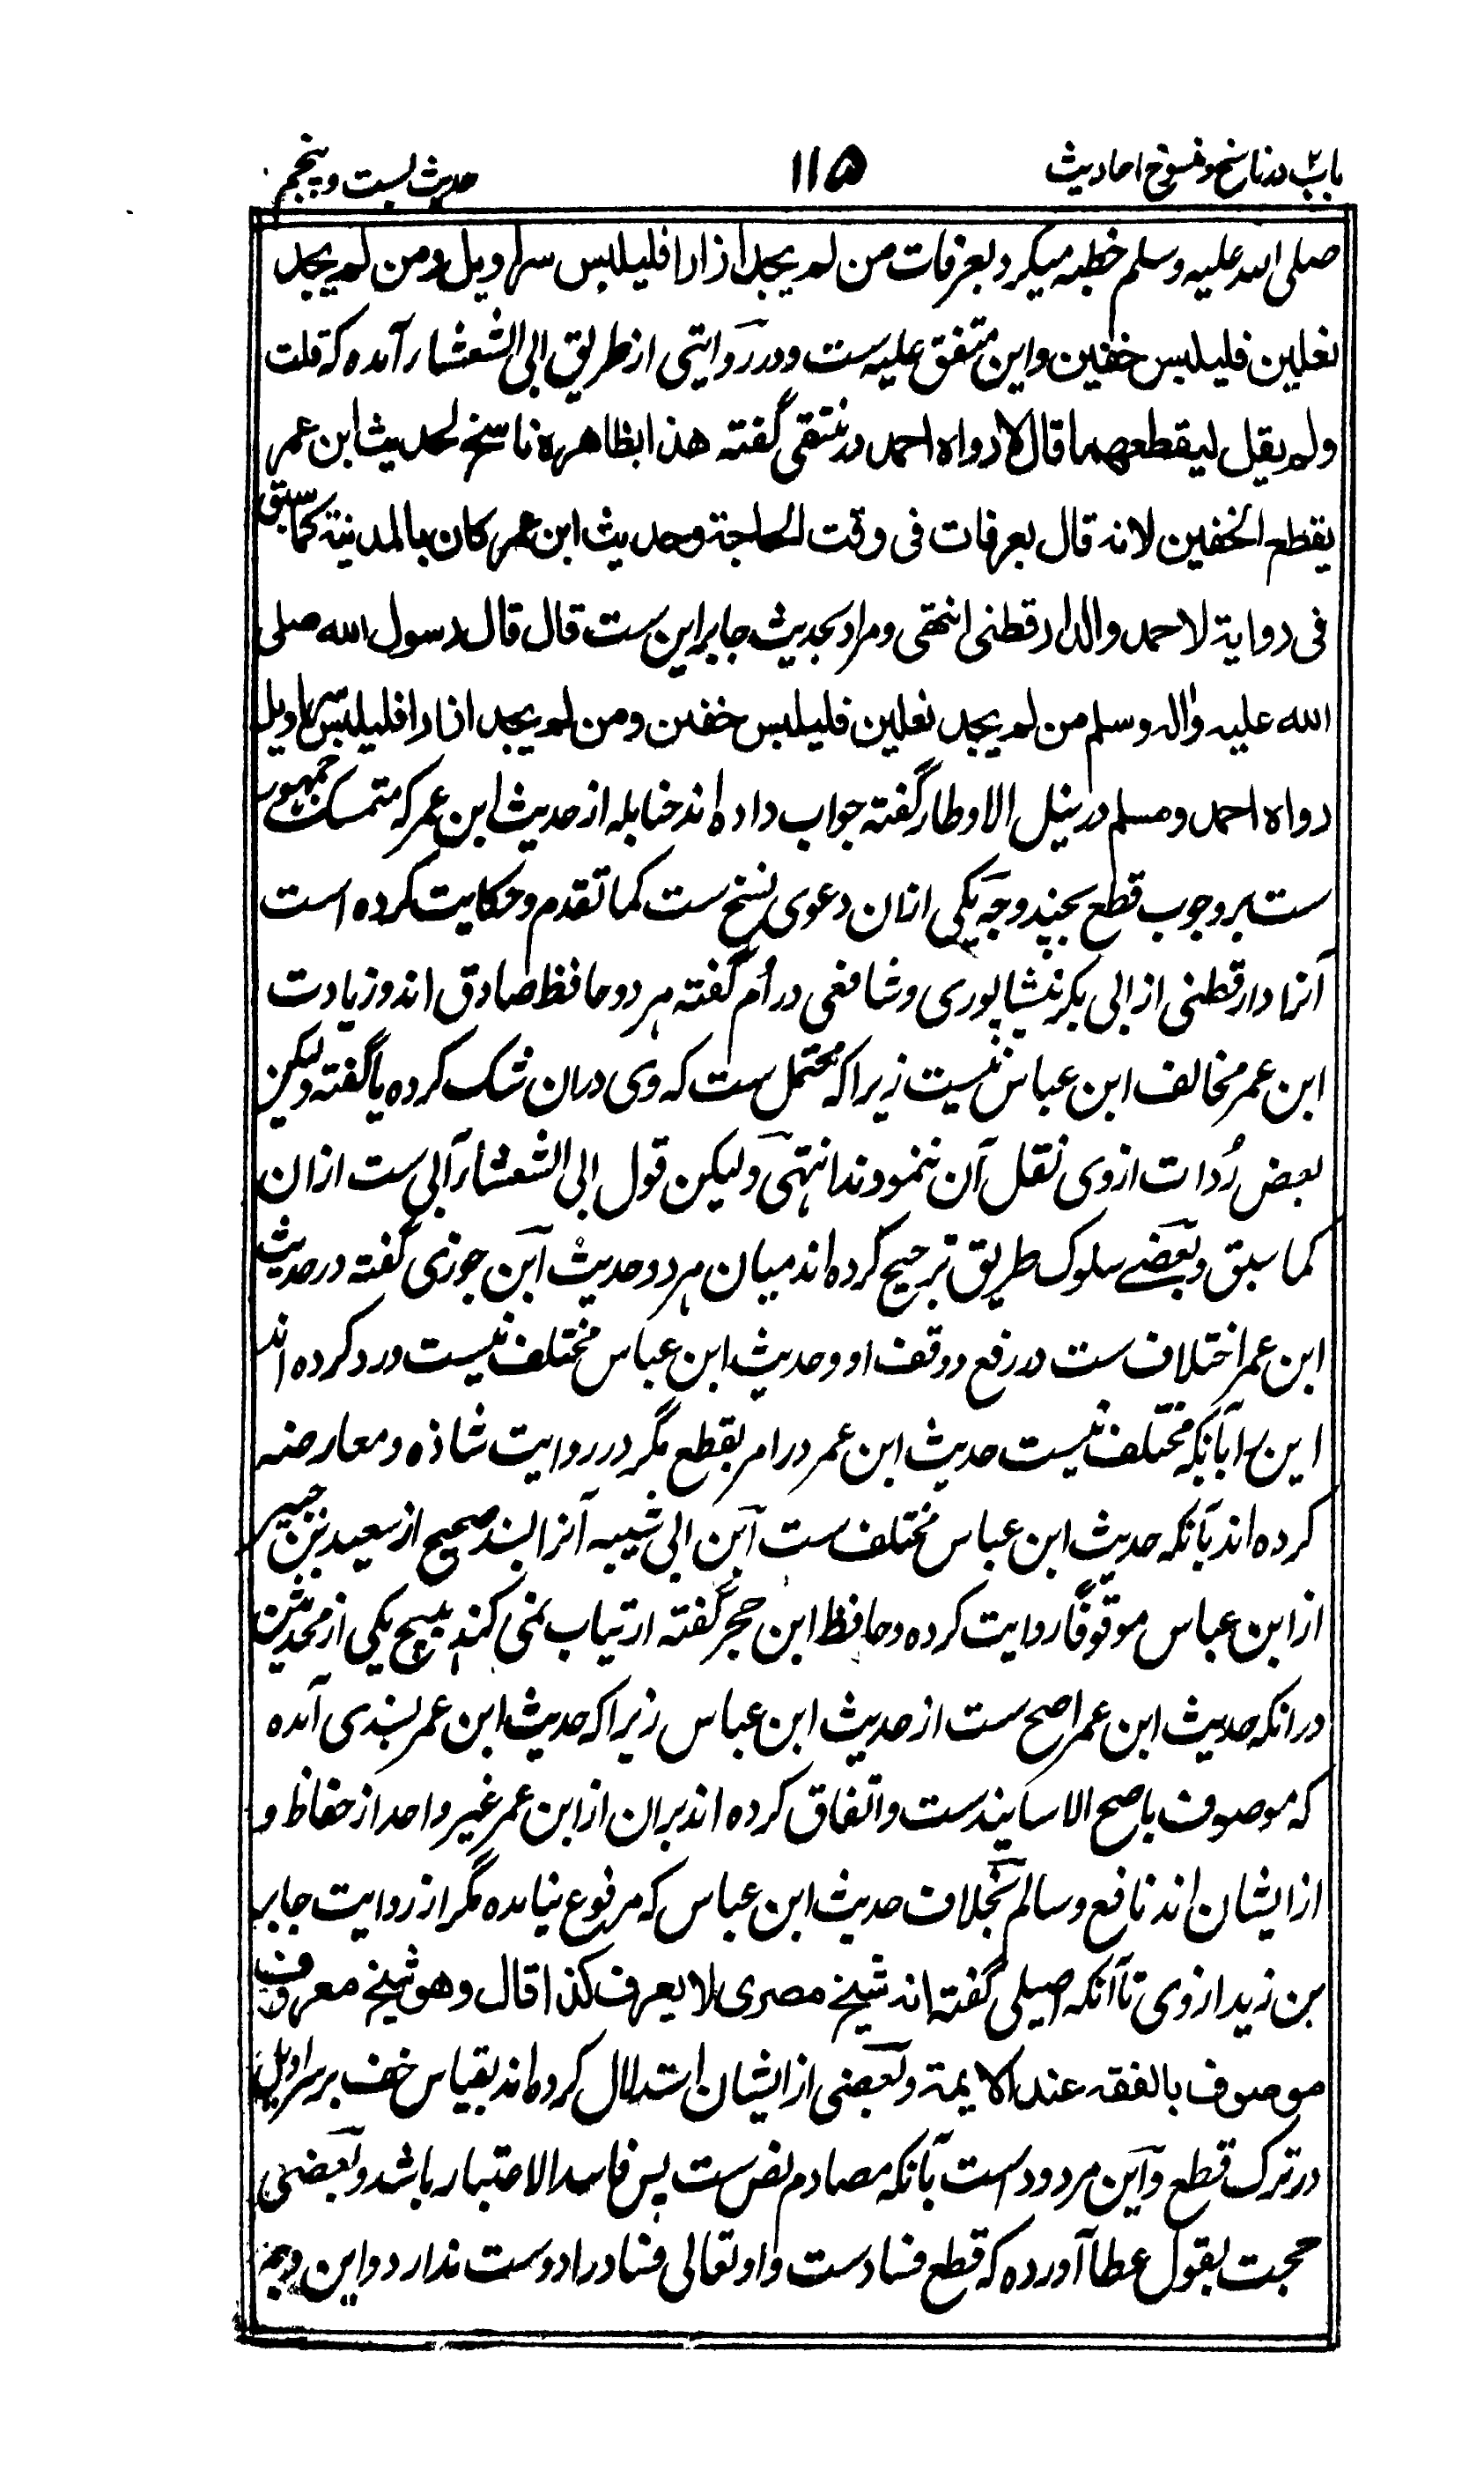 باب۲ در ناسخ و منسوخ احادیث
۱۱۵
حدیث بست و پنجم
صلی الله علیه وسلم خطبه میکرد بعرفات من لم یجد ازارا فلیلبس سراویل ومن لم یجد
نعلین فلیلبس خفین و این متفق علیه ست و در روایتی از طریق ابی الشعثا ر آمده که قلت
ولم یقل لیقطعهما قال لا رواه احمد در منتقی گفته هذا بظاهره ناسخ لحدیث ابن عمر
یقطع الخفین لانه قال بعرفات فی وقت الحاجة وحدیث ابن عمر کان بالمدینة کما سبق
فی روایة لاحمد والدارقطنی انتهی و مراد بحدیث جابر این ست قال قال رسول الله صلی
الله علیه واله وسلم من لم یجد نعلین فلیلبس خفین ومن لم یجد ازارا فلیلبس سراویل
رواه احمد ومسلم در نیل الاوطار گفته جواب داده اند حنابله از حدیث ابن عمر که متمسک جمهور
ست بر وجوب قطع بچند وجه یکی ازان دعوی نسخ ست کما تقدم و حکایت کرده است
آنرا دارقطنی از ابی بکر نیشاپوری و شافعی در اُم گفته هر دو حافظ صادق اند و زیادت
ابن عمر مخالف ابن عباس نیست زیرا که محتمل ست که وی دران شک کرده یا گفته ولیکن
بعض رُوات از وی نقل آن ننمودند انتهی و لیکن قول ابی الشعثا ر آبی ست ازان
کما سبق و بعضے سلوک طریق ترجیح کرده اند میان هر دو حدیث ابن جوزی گفته در حدیث
ابن عمر اختلاف ست در رفع و وقف او و حدیث ابن عباس مختلف نیست و رد کرده اند
این را بآنکه مختلف نیست حدیث ابن عمر در امر بقطع مگر در روایت شاذه و معارضه
کرده اند بآنکه حدیث ابن عباس مختلف ست ابن ابی شیبه آنرا بسند صحیح از سعید بن جبیر
از ابن عباس موقوفًا روایت کرده و حافظ ابن حجر گفته ارتیاب نمی کند هیچ یکی از محدثین
درانکه حدیث ابن عمر اصح ست از حدیث ابن عباس زیرا که حدیث ابن عمر بسندی آمده
که موصوف باصح الاسانیدست و اتفاق کرده اند بران از ابن عمر غیر واحد از حفاظ و
از ایشان اند نافع و سالم بخلاف حدیث ابن عباس که مرفوع نیامده مگر از روایت جابر
بن زید از وی تا آنکه اصیلی گفته انه شیخ مصری لا یعرف کذا قال وهو شیخ معروف
موصوف بالفقه عند الایمة و بعضی از ایشان استدلال کرده اند بقیاس خف بر سراویل
در ترک قطع و این مردود است بآنکه مصادم نص ست پس فاسد الاعتبار باشد و بعضی
حجت بقول عطا آورده که قطع فسادست و او تعالی فساد را دوست ندارد و این وجه